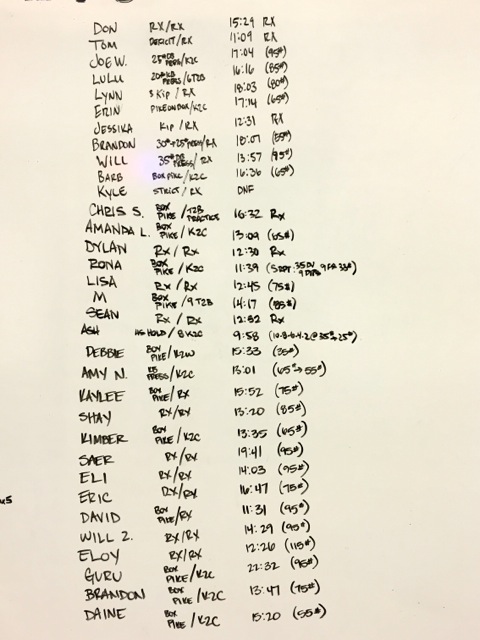 DON RX/RX 15:29 RX
TOM DEFICIT/RX 11:09 RX
JOE W. 25# DB PRESS/K2C 17:04 (95#)
LULU 20# KB PRESS/6T2B 16:16 (85#)
LYNN S KIP / RX 18:03 (80#)
ERIN PIKE ON BOX/K2C 17:14 (65#)
JESSIKA KIP / RX 12:31 RX
BRANDON 30#+25# PRESS/RX 18:07 (85#)
WILL 35# DB PRESS/RX 13:57 (95#)
BARB BOX PIKE/K2C 16:36 (65#)
KYLE STRICT / RX DNF
CHRIS S. BOX PIKE / T2B PRACTICE 16:32 RX
AMANDA L. BOX PIKE / K2C 13:09 (65#)
DYLAN RX / RX 12:30 RX
RONA BOX PIKE / K2C 11:39
LISA RX / RX 12:45 (75#)
M BOX PIKE / 9 T2B 14:17 (85#)
SEAN RX / RX 12:52 RX
ASH HS HOLD / 8 K2C 9:58 (10-8-6-4-2 @ 35#, 25#)
DEBBIE BOX PIKE / K2W 15:33 (35#)
AMY N. KB PRESS/K2C 13:01 (65#→55#)
KAYLEE BOX PIKE/RX 15:52 (75#)
SHAY RX/RX 13:20 (85#)
KIMBER BOX PIKE / K2C 13:35 (65#)
SAER RX/RX 19:41 (95#)
ELI RX/RX 14:03 (95#)
ERIC RX/RX 16:47 (75#)
DAVID BOX PIKE/RX 11:31 (95#)
WILL Z. RX/RX 14:29 (95#)
ELOY RX/RX 12:26 (115#)
GURU BOX PIKE / K2C 22:32 (95#)
BRANDON BOX PIKE / K2C 13:47 (75#)
DAINE BOX PIKE / K2C 15:20 (55#)